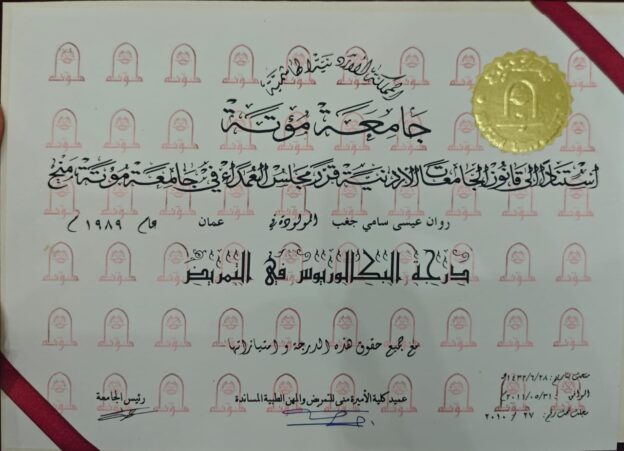 المملكة الأردنية الهاشمية
جامعة مؤتة
استناداً إلى قانون الجامعات الاردنية قرر مجلس العمداء في جامعة مؤتة منح
روان عيسى سامي جغب المولودة في عمان عام ١٩٨٩ م
درجة البكالوريوس في التمريض
مع جميع حقوق هذه الدرجة و امتيازاتها
منحت بتاريخ: ١٤٣٢/٦/٢٨هـ
الموافق: ٢٠١١/٠٥/٣١م
رقم: ٢٧ / ٢٠١٠
عميد كلية الأميرة منى للتمريض والمهن الطبية المساندة
رئيس الجامعة
مؤتة